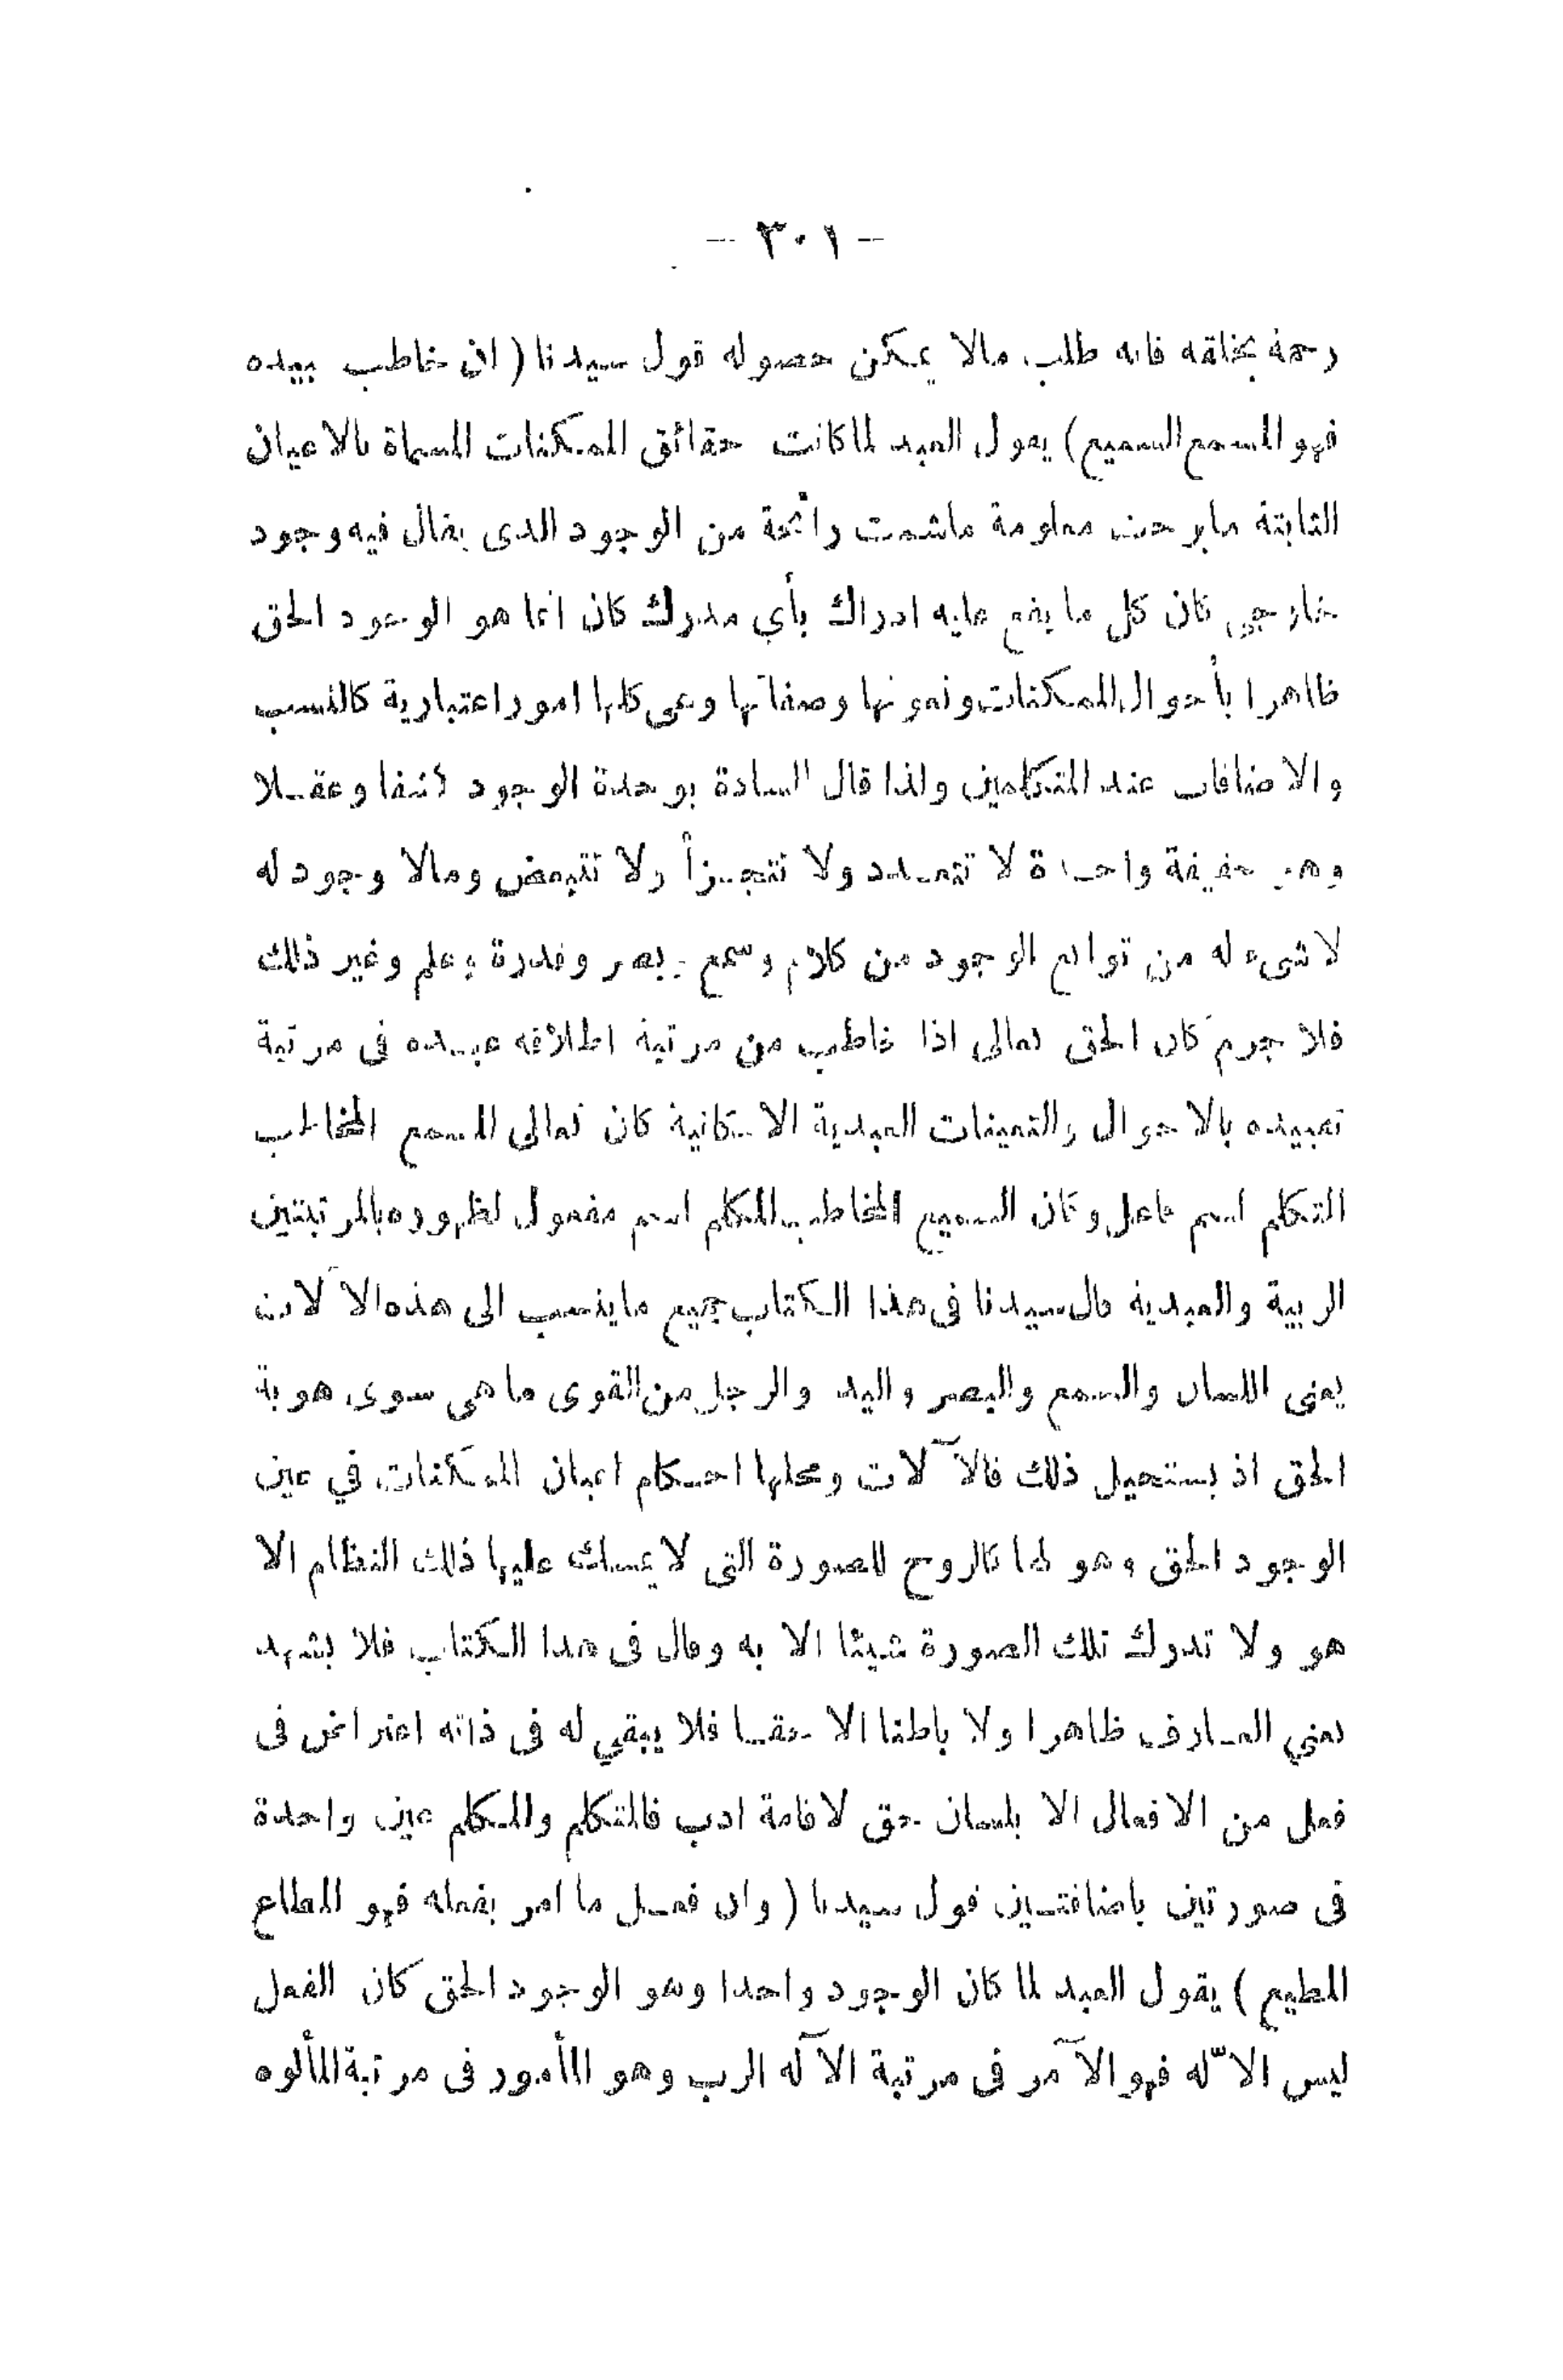 — ٣٠١ —
رحمة بخلقه فانه طلب مالا يمكن حصوله قول سيدنا ( ان خاطب بيده
فهو المسمع السميع ) يقول العبد لما كانت حقائق الممكنات المسماة بالاعيان
الثابتة مابرحت معلومة ماشمت رائحة من الوجود الذى يقال فيه وجود
خارجى كان كل ما يقع عليه ادراك بأي مدرك كان انما هو الوجود الحق
ظاهرا بأحوال الممكنات ونعوتها وصفاتها وهى كلها امور اعتبارية كالنسب
والاضافات عند المتكلمين ولذا قال السادة بوحدة الوجود كشفا وعقلا
وهى حقيقة واحدة لا تتعدد ولا تتجزأ ولا تتبعض ومالا وجود له
لا شىء له من توابع الوجود من كلام وسمع وبصر وقدرة وعلم وغير ذلك
فلا جرم كان الحق تعالى اذا خاطب من مرتبة اطلاقه عبده فى مرتبة
تقييده بالاحوال والتعينات العبدية الامكانية كان تعالى المسمع المخاطب
المتكلم اسم فاعل وكان السميع المخاطب المكلم اسم مفعول لظهوره بالمرتبتين
الربية والعبدية قال سيدنا فى هذا الكتاب جميع ماينسب الى هذه الآلات
يعنى اللسان والسمع والبصر واليد والرجل من القوى ما هى سوى هوية
الحق اذ يستحيل ذلك فالآلات ومحلها احكام اعيان الممكنات في عين
الوجود الحق وهو لها كالروح للصورة التى لا يمسك عليها ذلك النظام الا
هو ولا تدرك تلك الصورة شيئا الا به وقال فى هذا الكتاب فلا يشهد
يعني العارف ظاهرا ولا باطنا الا حقا فلا يبقي له فى ذاته اعتراض فى
فعل من الافعال الا بلسان حق لاقامة ادب فالمتكلم والمكلم عين واحدة
فى صورتين باضافتين قول سيدنا ( وان فعل ما امر بفعله فهو المطاع
المطيع ) يقول العبد لما كان الوجود واحدا وهو الوجود الحق كان الفعل
ليس الاّ له فهو الآمر فى مرتبة الآله الرب وهو المأمور فى مرتبة المألوه